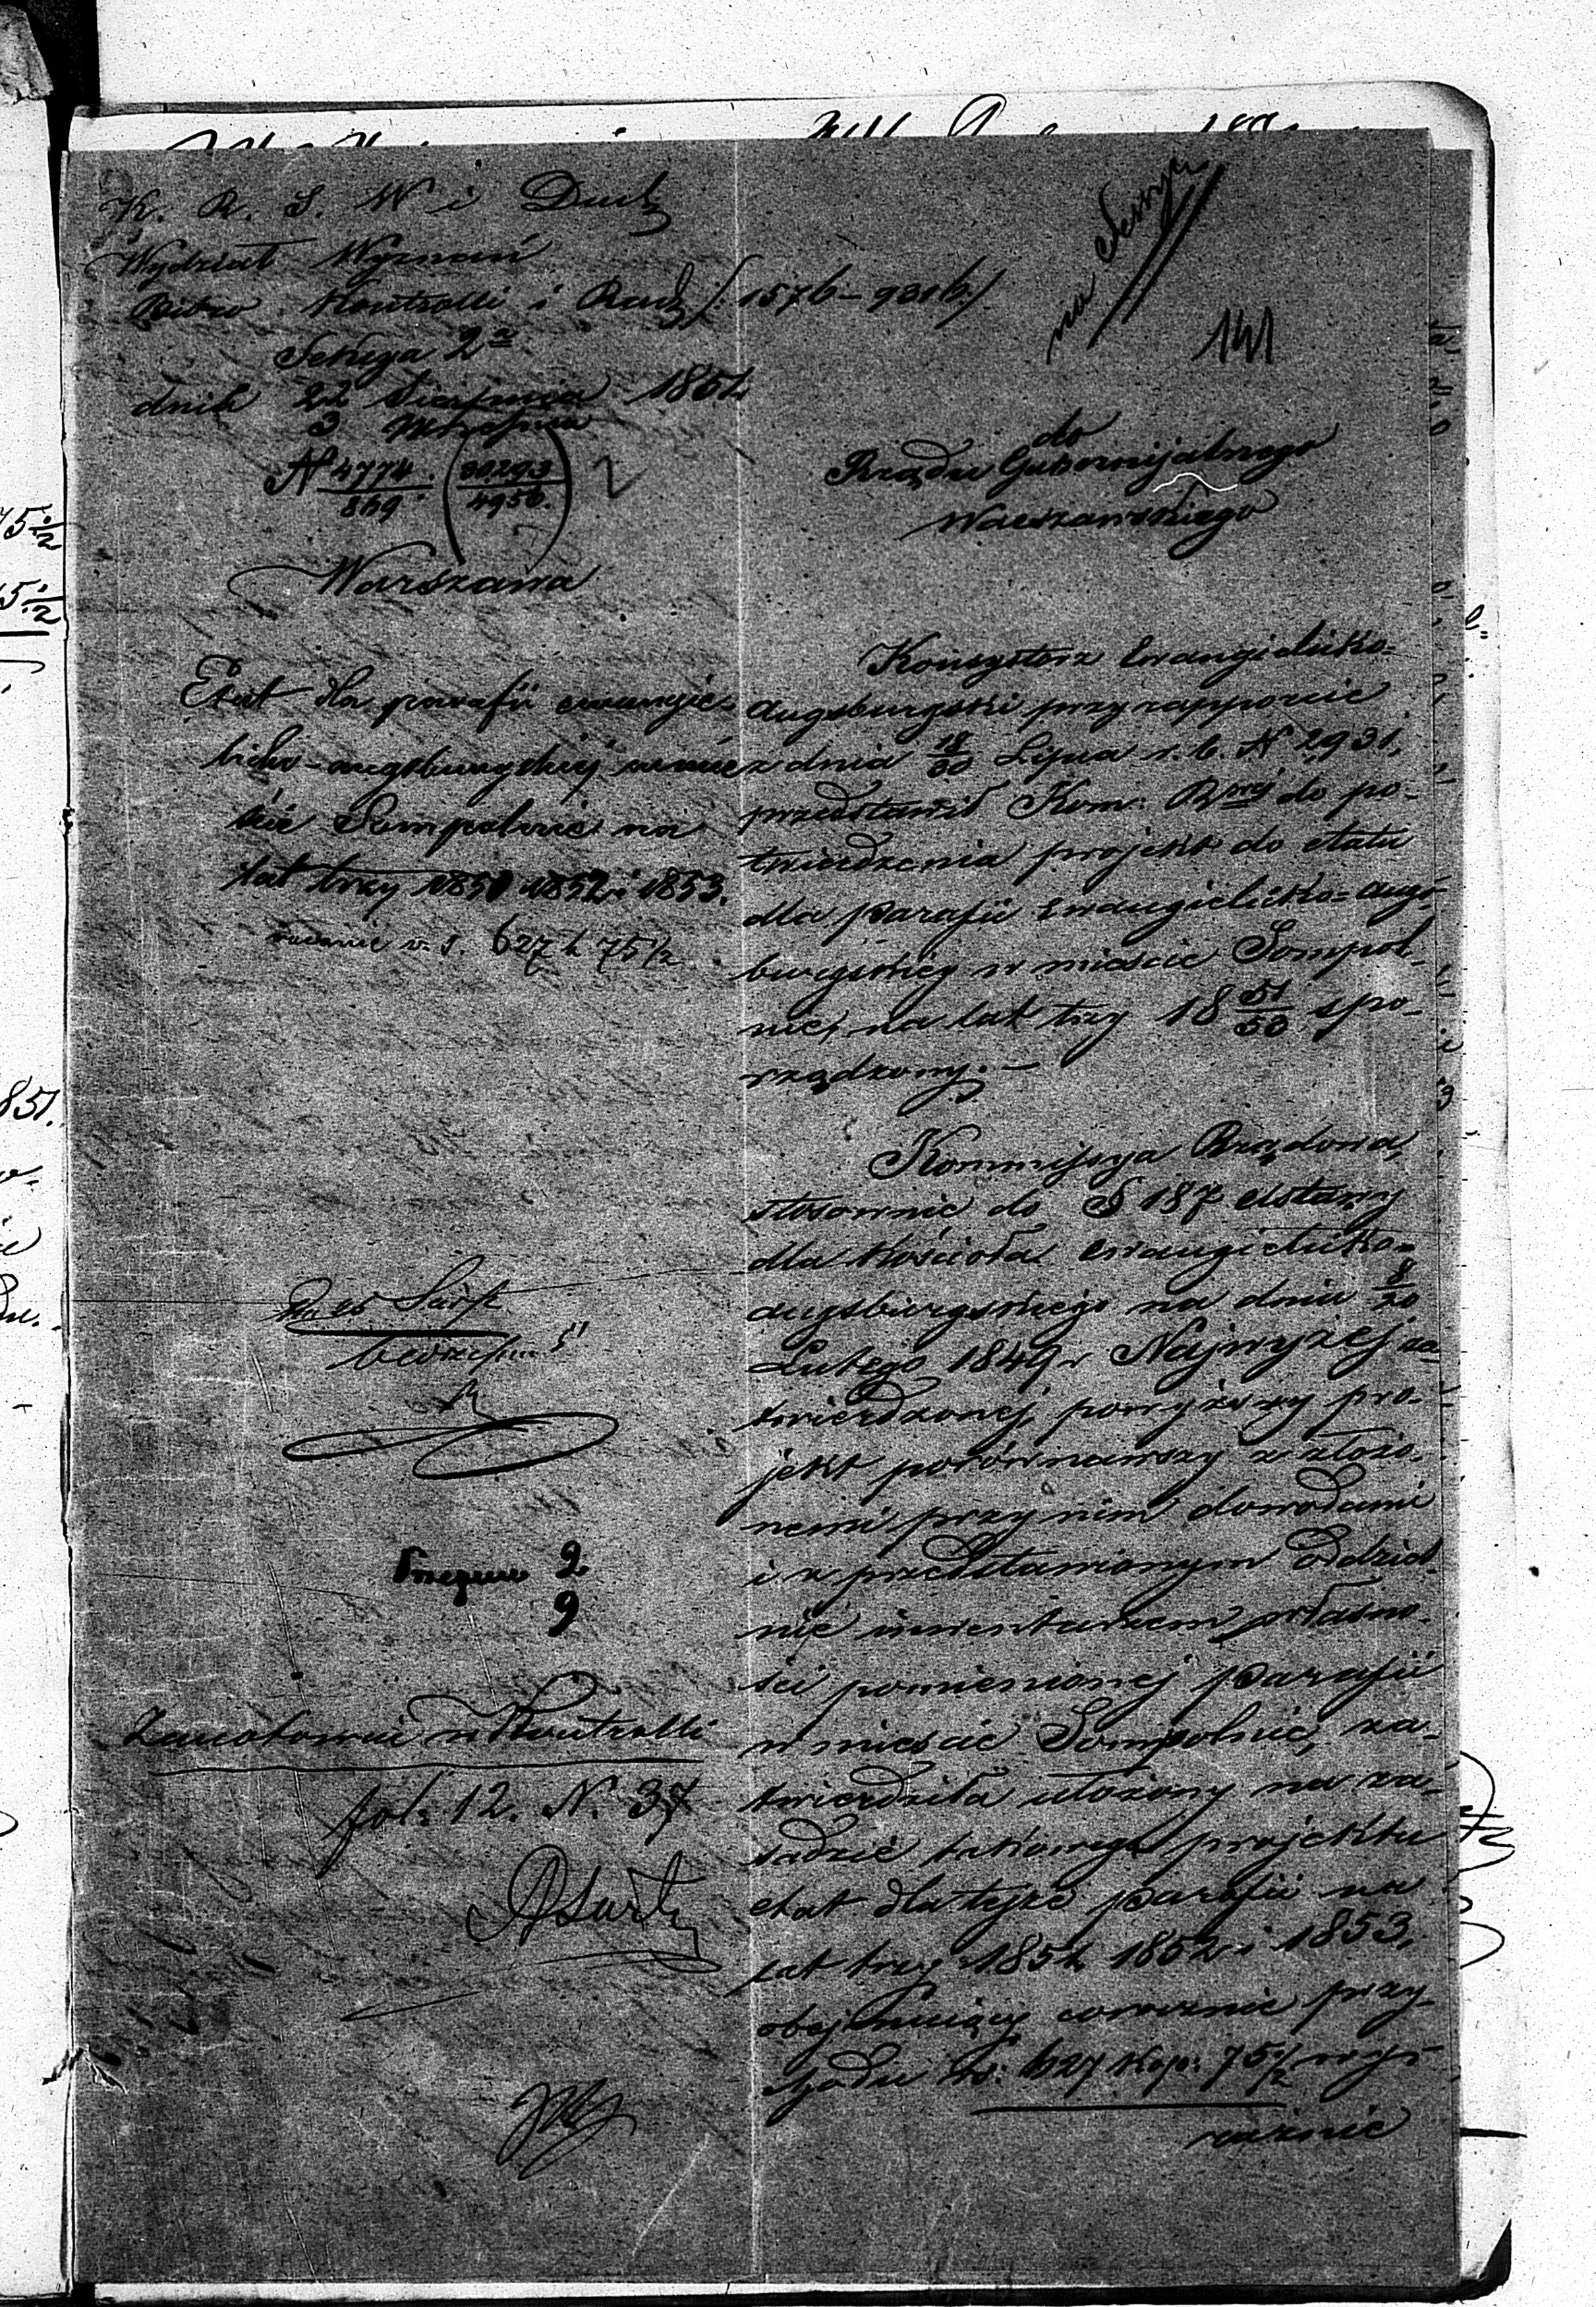 K. R. S. W i Duch
Wydział Wyznań
Biuro Kontrolli i Rach (1576–9316)
Sekcya 2a
dnia 22 Sierpnia 1851
3 Września
N 4774 (30293
869 4950.)
Warszawa
141
do
Rządu Gubernijalnego
Warszawskiego
Etat dla parafii ewangie-
licko-augsburgskiej w mie-
ście Sompolnie na
lat trzy 1851 1852 i 1853.
rocznie r. s. 627 k 75 1/2
Zanotowano w Kontrolli
fol: 12. N. 37
Konsystorz Ewangielicko-
Augsburgski przy rapporcie
z dnia 18/30 Lipca r. b. N 2931,
przedstawił Kom: Rwej do po-
twierdzenia projekt do etatu
dla parafii Ewangielicko-augs-
burgskiej w mieście Sompol-
nie, na lat trzy 18 51/53 spo-
rządzony.—
Kommissya Rządowa,
stosownie do § 187 Ustawy
dla Kościoła Ewangielicko-
augsburgskiego na dniu 8/20
Lutego 1849 r Najwyżej za-
twierdzonej, powyższy pro-
jekt porównawszy z złożo-
nemi przy nim dowodami
i z przedstawionym oddziel-
nie inwentarzem własno-
ści pomienionej parafii
w mieście Sompolnie, za-
twierdziła ułożony na za-
sadzie takowego projektu
etat dla tejże parafii na
lat trzy 1851, 1852 i 1853,
obejmujący corocznie przy-
chodu rs: 627 kop: 75 1/2 wy-
raźnie